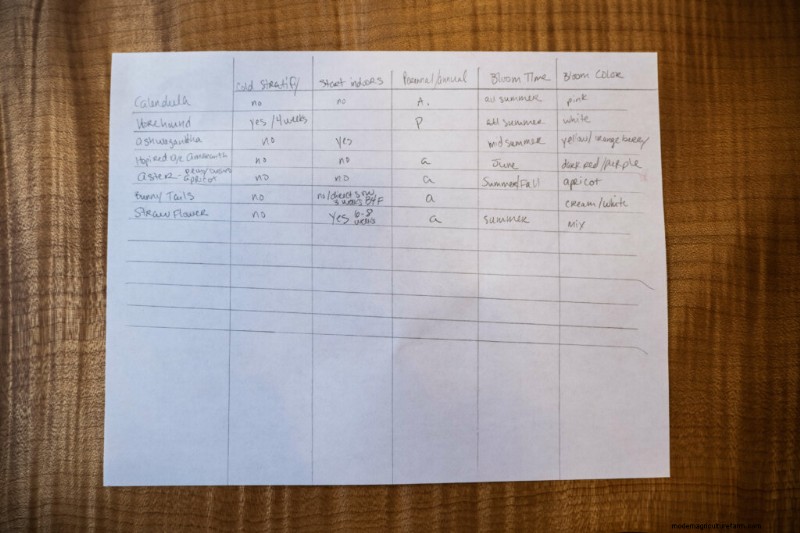 Cold Stratify Start indoors Perennial/annual Bloom Time Bloom Color
Calendula no no A. all summer pink
Horehound yes/4weeks P all summer white
ashwagandha no yes midsummer yellow/orange berry
Hopi red dye amaranth no no a June dark red/purple
Aster - apricot no no a Summer/Fall apricot
Bunny Tails no no/direct sow weeks a cream/white
Straw Flower no Yes 6-8 weeks a summer mix